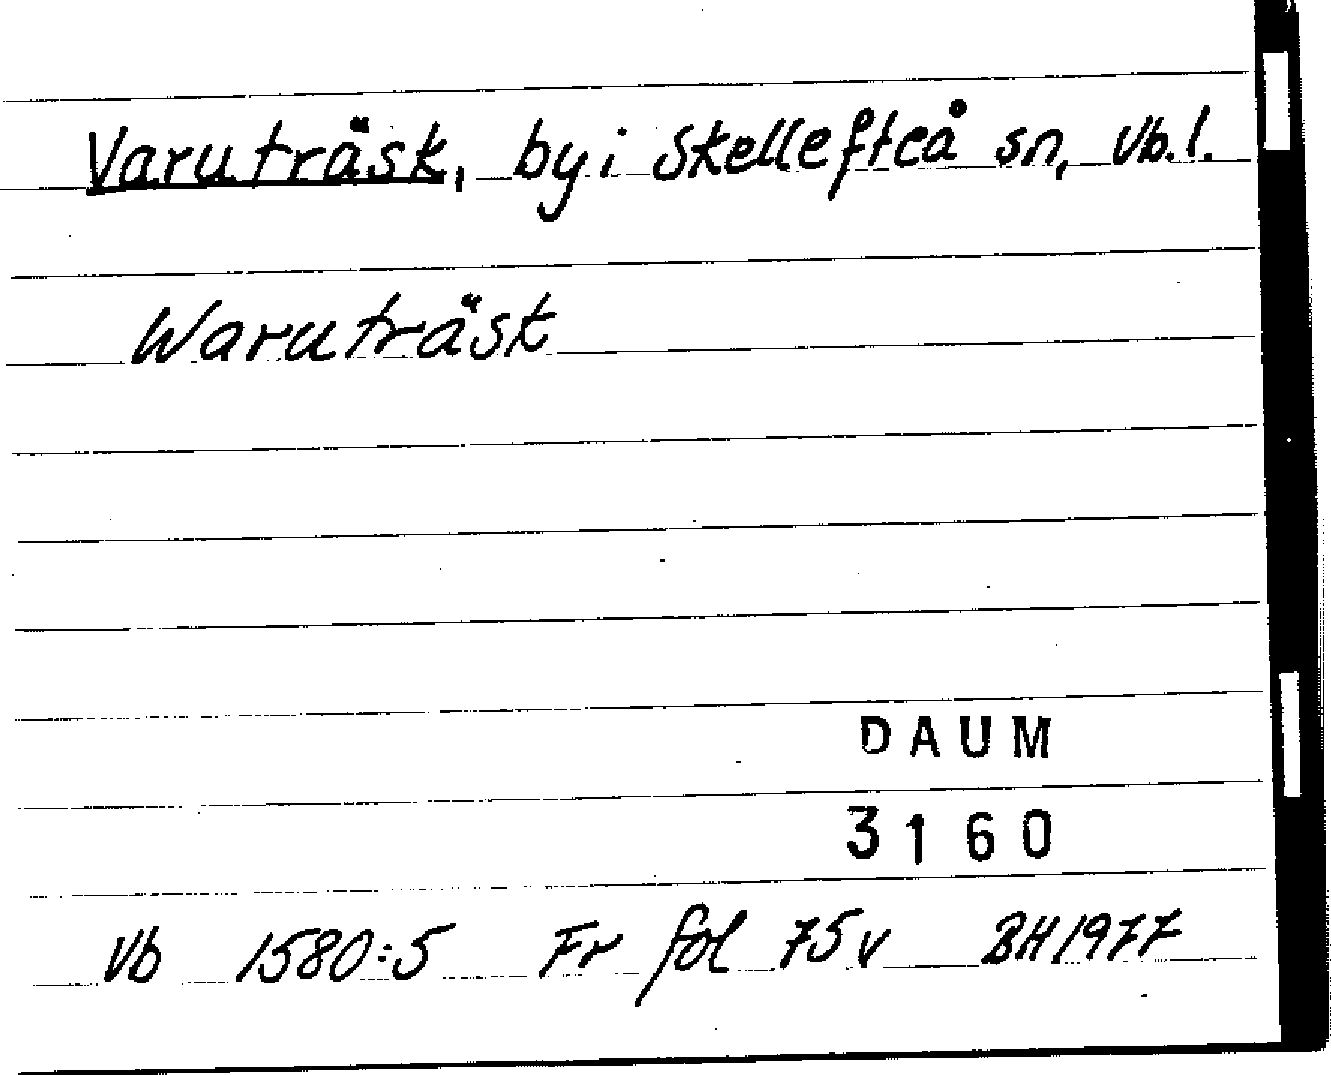 Varuträsk, by i Skellefteå sn, Vb.l.
Waruträsk
DAUM
3160
Vb 1580:5 Fr fol 75v BH1977